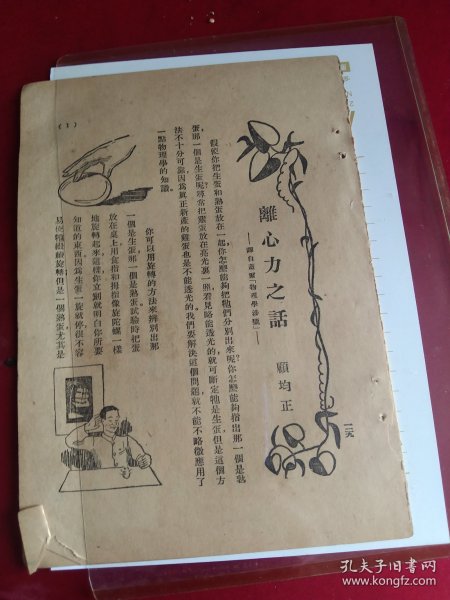 離心力之話
顧均正
一三九
假使你把生蛋和熟蛋放在一起，你怎麼能夠把牠們分別出來呢？你怎麼能夠指出那一個是熟
蛋，那一個是生蛋呢？尋常把雞蛋放在亮光裏一照，看見略能透光的，就可斷定牠是生蛋，但是這個方
法不十分可靠，因爲眞正新產的雞蛋也是不能透光的。我們要解決這個問題，就不能不略微應用了
一點物理學的知識。
你可以用旋轉的方法來辨別出那
一個是生蛋那一個是熟蛋。試驗時把蛋
放在桌上，用食指和拇指像旋陀螺一樣
地旋轉起來。這樣，你立刻就明白你所要
知道的東西，因爲生蛋一旋就停，很不容
易使牠繼續旋轉，但是一個熟蛋，尤其是
(1)
孔夫子旧书网
www.kongfz.com